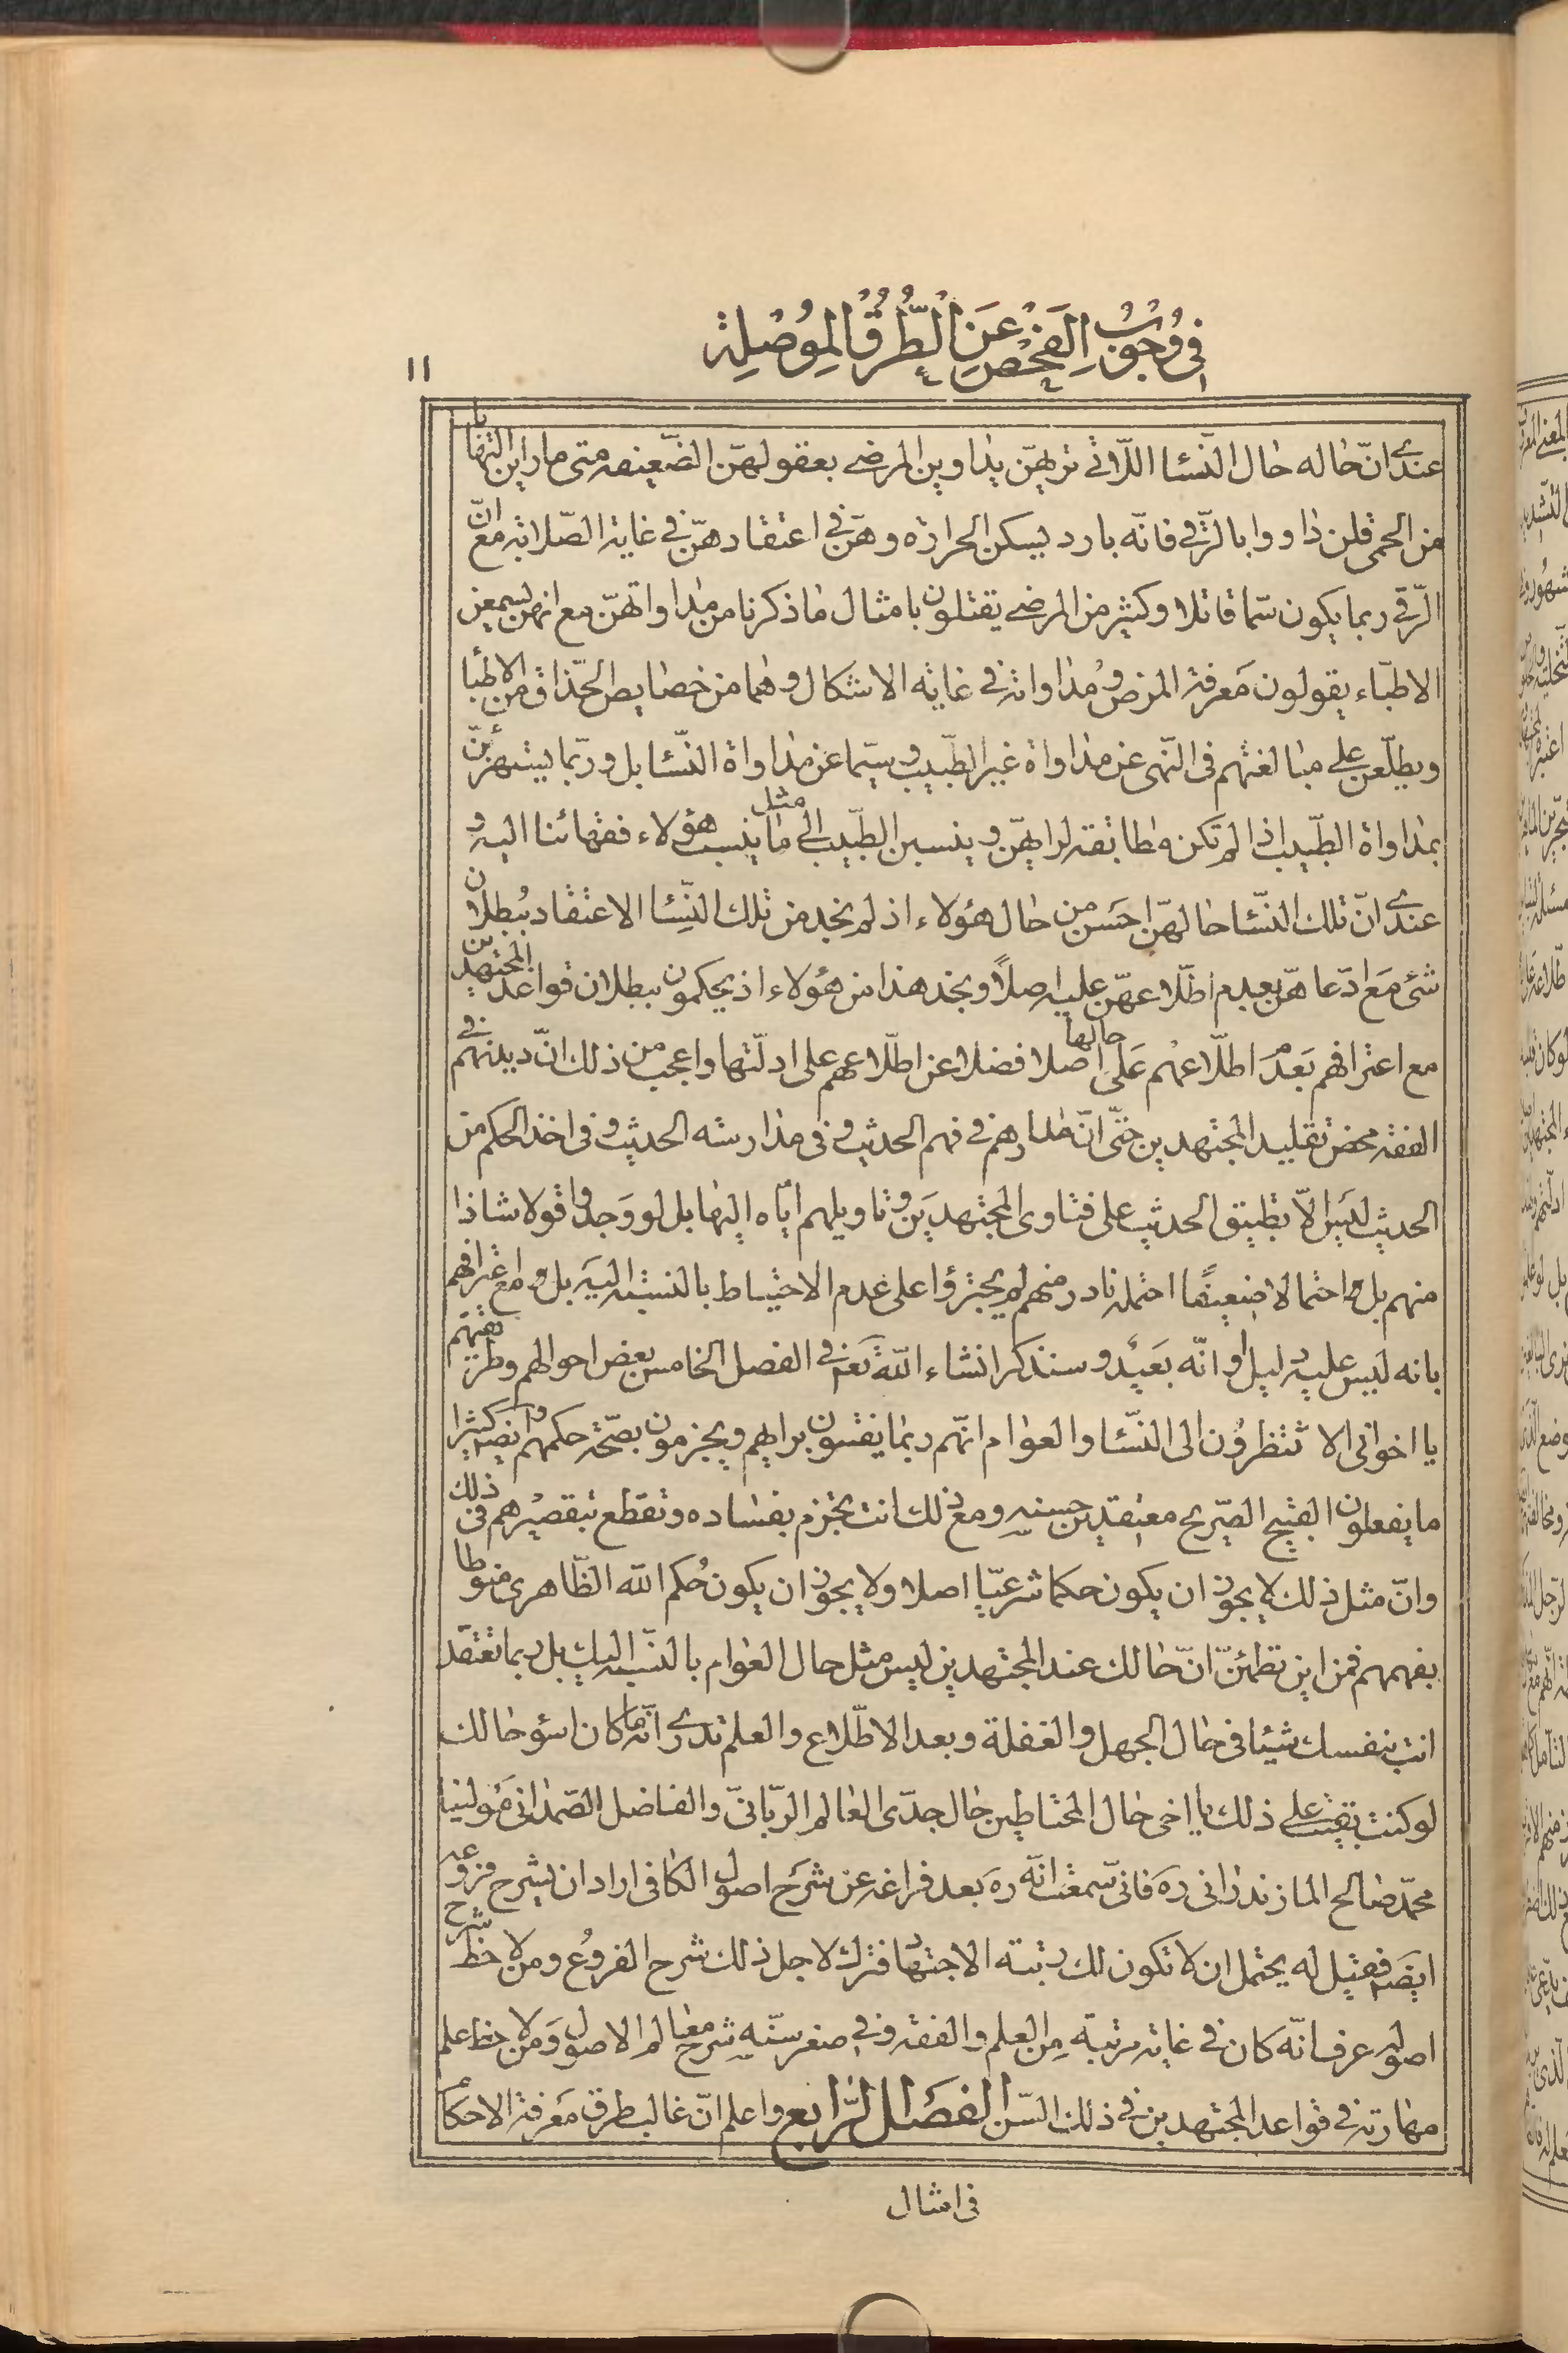 في وجوب الفحص عن الطرق الموصلة
١١
عندي انّ حاله حال النّسا اللّاتي تريهنّ يداوين المرضى بعقولهنّ الضّعيفه متى ما راين التهابا
من الحمى قلن داووا بالرّقي فانّه بارد يسكن الحرارة وهنّ في اعتقادهنّ في غاية الصّلابة مع انّ
الرّقي ربما يكون سمّا قاتلا وكثير من المرضى يقتلون بامثال ما ذكرنا من مداواتهنّ مع انهن يسمعن
الاطبّاء يقولون معرفة المرض ومداواته في غاية الاشكال وهما من خصايص الحذّاق من الاطبّا
ويطلّعن على مبالغتهم في النّهي عن مداواة غير الطّبيب وسيّما عن مداواة النّسا بل وربّما يستهزئنّ
بمداواة الطّبيب اذا لم تكن مطابقة لرايهنّ وينسبن الطّبيب الى مثل ما ينسب هؤلاء فقهائنا اليه و
عندي انّ تلك النّسا حالهنّ احسن من حال هؤلاء اذ لم نجد من تلك النّسا الاعتقاد ببطلان
شئ مع ادّعاهنّ بعدم اطّلاعهنّ عليه اصلاً ونجد هذا من هؤلاء اذ يحكمون ببطلان قواعد المجتهدين
مع اعترافهم بعدم اطلّاعهم على حالها اصلا فضلا عن اطلّاعهم على ادلّتها واعجب من ذلك انّ ديدنهم في
الفقه محض تقليد المجتهدين حتّى انّ مدارهم في فهم الحديث وفي مدارسة الحديث وفي اخذ الحكم من
الحديث ليس الّا تطبيق الحديث على فتاوى المجتهدين وتاويلهم ايّاه اليها بل لو وجدوا قولا شاذا
منهم بل واحتمالا ضعيفًا احتمله نادر منهم لم يجترؤا على عدم الاحتياط بالنسبة اليه بل ومع اعترافهم
بانه ليس عليه دليل او انّه بعيد وسنذكر انشاء اللّه تع في الفصل الخامس بعض احوالهم وطريقتهم
يا اخواني الا تنظرون الى النّسا والعوام انّهم ربما يفتون برايهم ويجزمون بصّحة حكمهم وايضا كثيرا
ما يفعلون القبيح الصّريح معتقدين حسنه ومع ذلك انت تجزم بفساده وتقطع بتقصيرهم في ذلك
وانّ مثل ذلك لا يجوز ان يكون حكما شرعيّا اصلا ولا يجوز ان يكون حكم الله الظّاهري منوطا
بفهمهم فمن اين تطمئنّ انّ حالك عند المجتهدين ليس مثل حال العوام بالنّسبة اليك بل ربما تعتقد
انت بنفسك شيئا في حال الجهل والغفلة وبعد الاطّلاع والعلم تدري انّه ما كان اسوء حالك
لو كنت بقيت على ذلك يا اخى حال المحتاطين حال جدّى العالم الربّانيّ والفاضل الصّمداني مولينا
محمّد صالح المازندراني ره فاني سمعت انّه ره بعد فراغه عن شرح اصول الكافى اراد ان يشرح فروعه
ايضه فقيل له يحتمل ان لا تكون لك رتبة الاجتهاد فترك لاجل ذلك شرح الفروع ومن لاحظ شرح
اصوله عرف انّه كان في غاية مرتبة من العلم والفقه وفي صغر سنّه شرح معالم الاصول ومن لاحظ علم
مهارته في قواعد المجتهدين في ذلك السّن الفصل الرّابع واعلم انّ غالب طرق معرفة الاحكام
في امثال